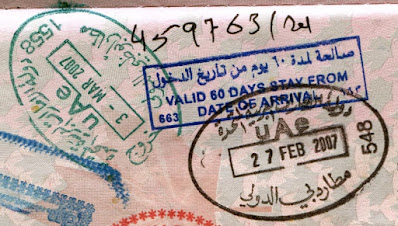 459763/
صالحة لمدة ٦٠ يوم من تاريخ الدخول
VALID 60 DAYS STAY FROM
DATE OF ARRIVAL
663
1558
3 - MAR 2007
UAe
UAe
27 FEB 2007
548
مطار دبي الدولي